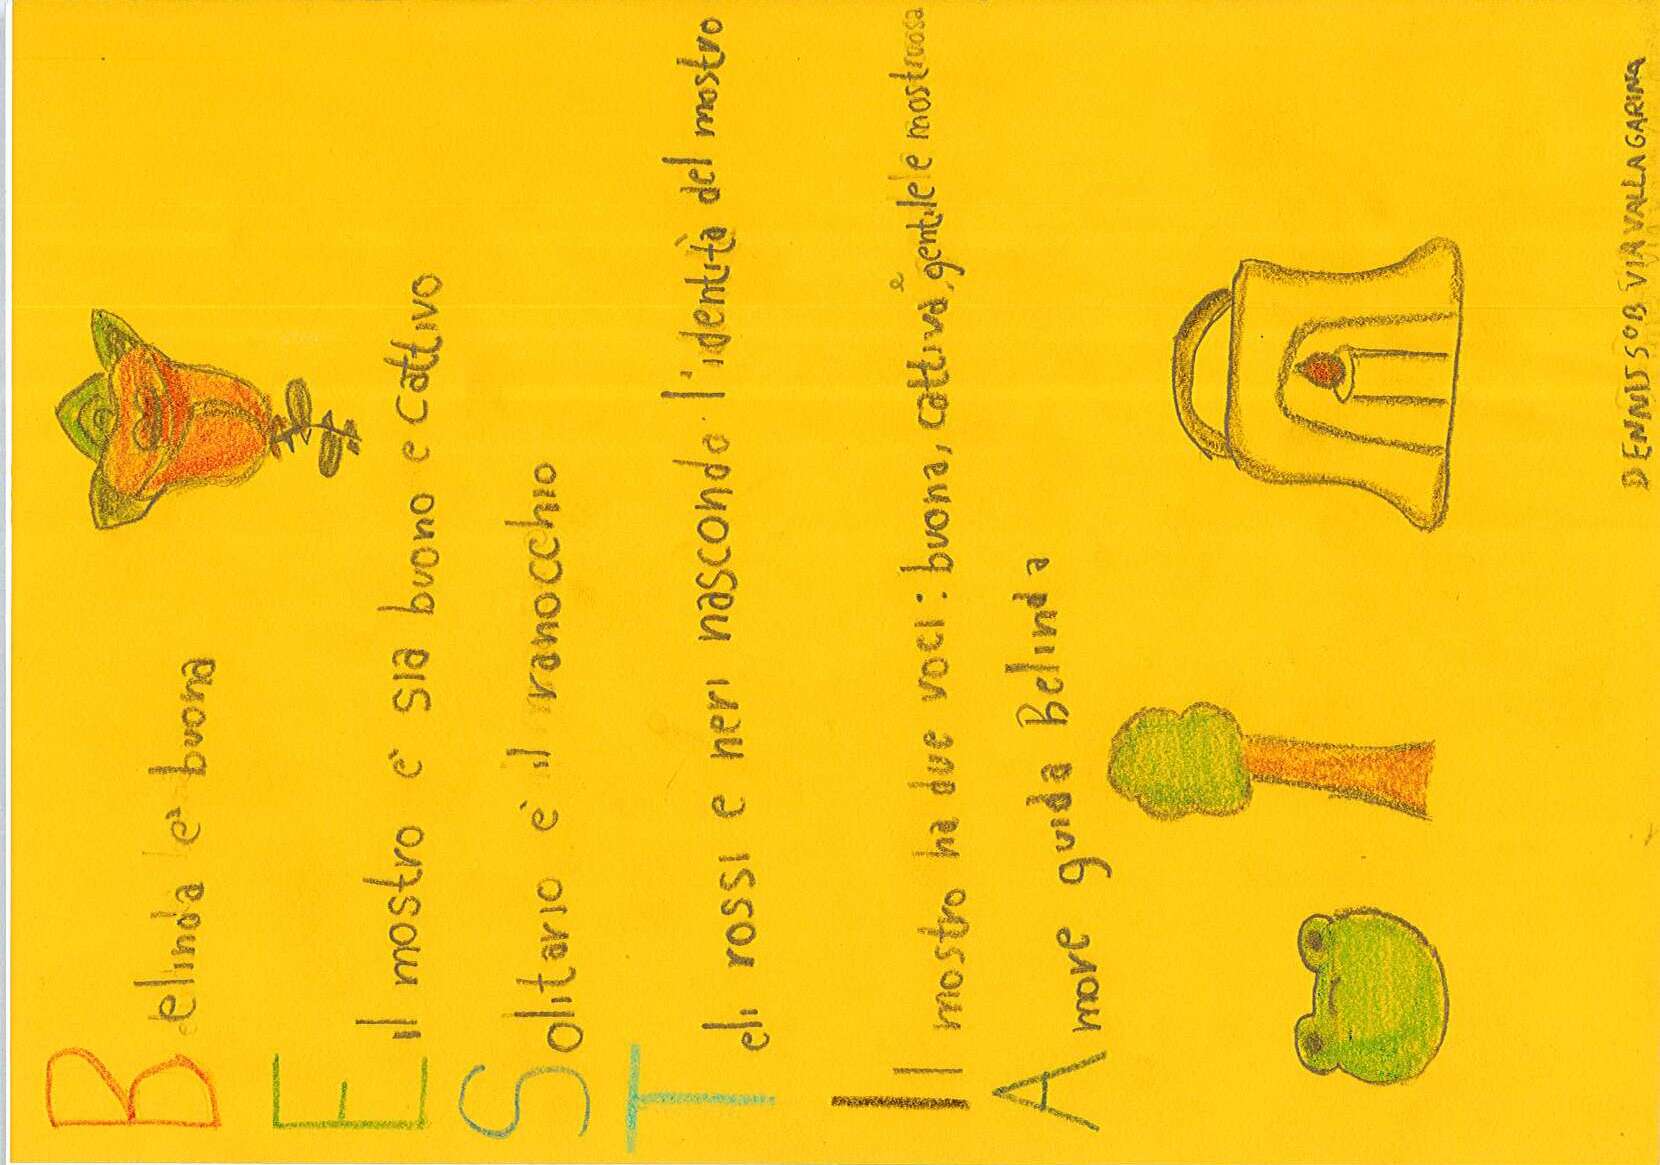 Belinda è buona
E il mostro è sia buono e cattivo
Solitario è il ranocchio
Teli rossi e neri nascondo l'identità del mostro
Il mostro ha due voci: buona, cattiva, è gentile e mostruosa
Amore guida Belinda
DENNIS 5°B VIA VALLAGARINA